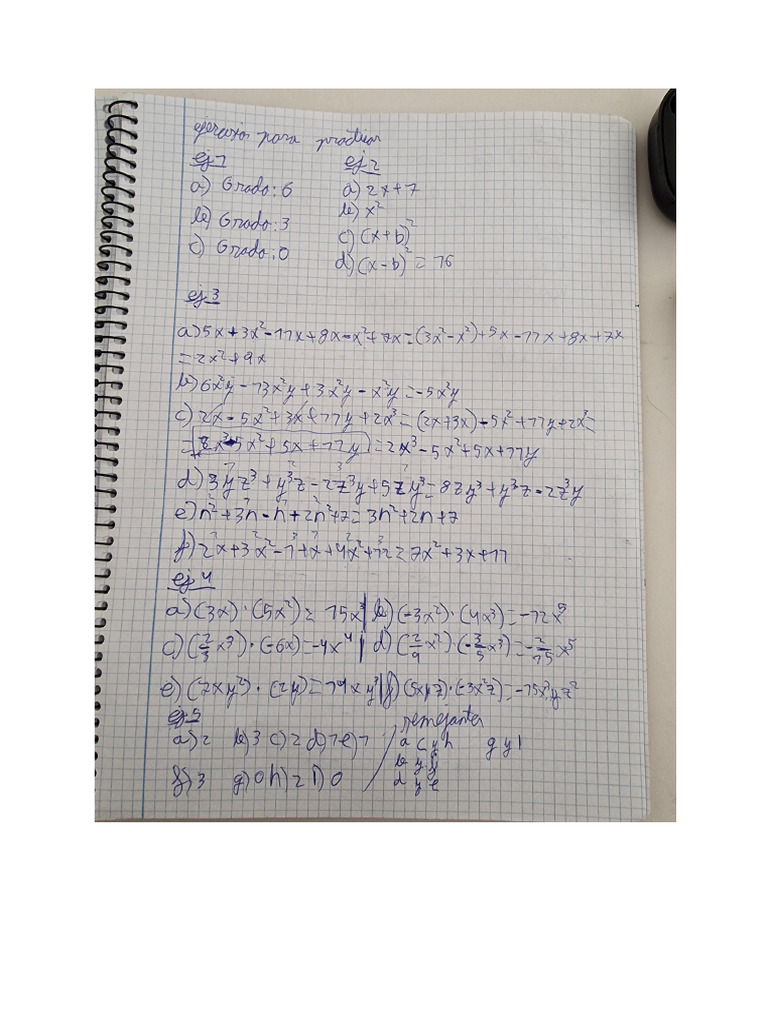 ejercicios para practicar
ej 1
a) Grado: 6
b) Grado: 3
c) Grado: 0
ej 2
a) 2x+7
b) x²
c) (x+b)²
d) (x-b)² = 16
ej 3
a) 5x+3x²-11x+8x-x²+7x=(3x²-x²)+5x-11x+8x+7x
=2x²+9x
b) 6x²y-13x²y+3x²y-x²y=-5x²y
c) 2x-5x²+3x+11y+2x³=(2x+3x)-5x²+11y+2x³=
=2x³-5x²+5x+11y
d) 3yz³+y³z-2z³y+5zy³=8zy³+y³z-2z³y
e) n²+3n-n+2n²+7=3n²+2n+7
f) 2x+3x²-1+x+4x²+12=7x²+3x+11
ej 4
a) (3x)·(5x²)=15x³ b) (-3x²)·(4x³)=-12x⁵
c) (2/3x³)·(-6x)=-4x⁴ d) (2/9x²)·(-3/5x³)=-2/15x⁵
e) (7xy²)·(2y)=14xy³ f) (5xyz)·(-3x²z)=-15x³yz²
ej 5
a) 2 b) 3 c) 2 d) 1 e) 1
f) 3 g) 0 h) 2 i) 0
semejantes
a c y h g y i
b y f
d y e